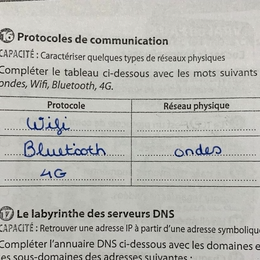 16 Protocoles de communication
CAPACITÉ : Caractériser quelques types de réseaux physiques
Compléter le tableau ci-dessous avec les mots suivants
ondes, Wifi, Bluetooth, 4G.
Protocole Réseau physique
Wifi
Bluetooth ondes
4G
17 Le labyrinthe des serveurs DNS
CAPACITÉ : Retrouver une adresse IP à partir d'une adresse symbolique
Compléter l'annuaire DNS ci-dessous avec les domaines e
les sous-domaines des adresses suivantes :